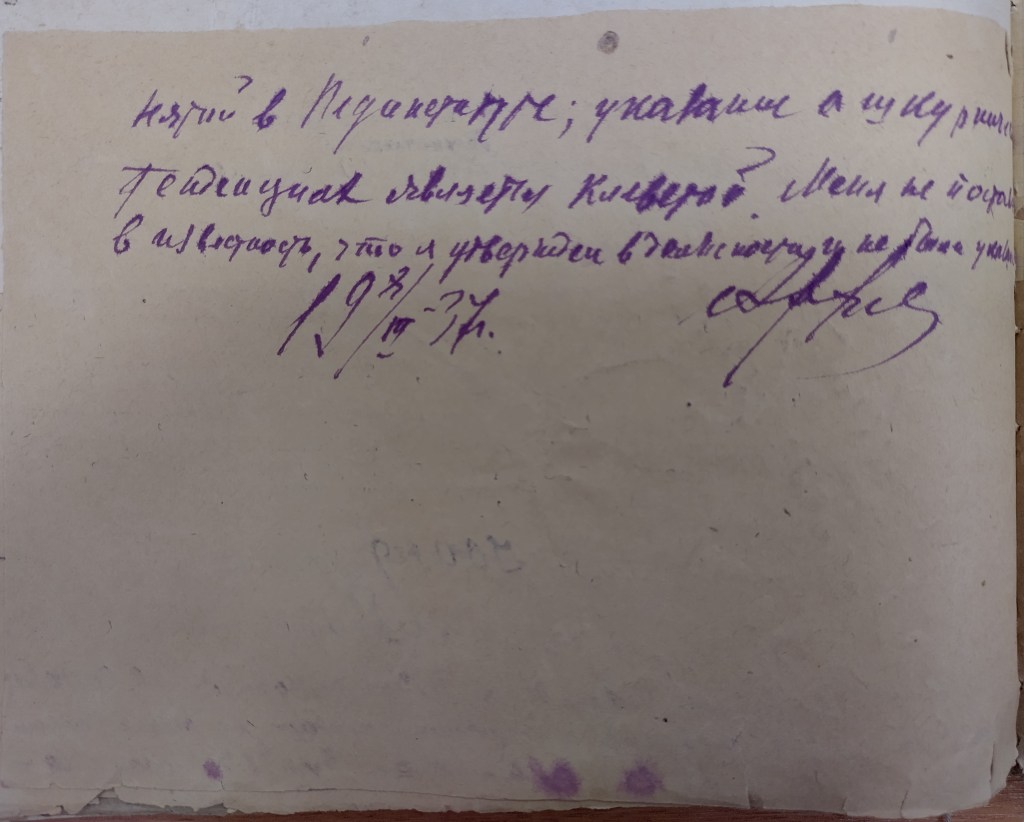 нятой в Пединституте; указание о шкурничес
тенденциях является клеветой. Меня не постави
в известность, что я утвержден в должности и не была указа
19 X/III-37г.